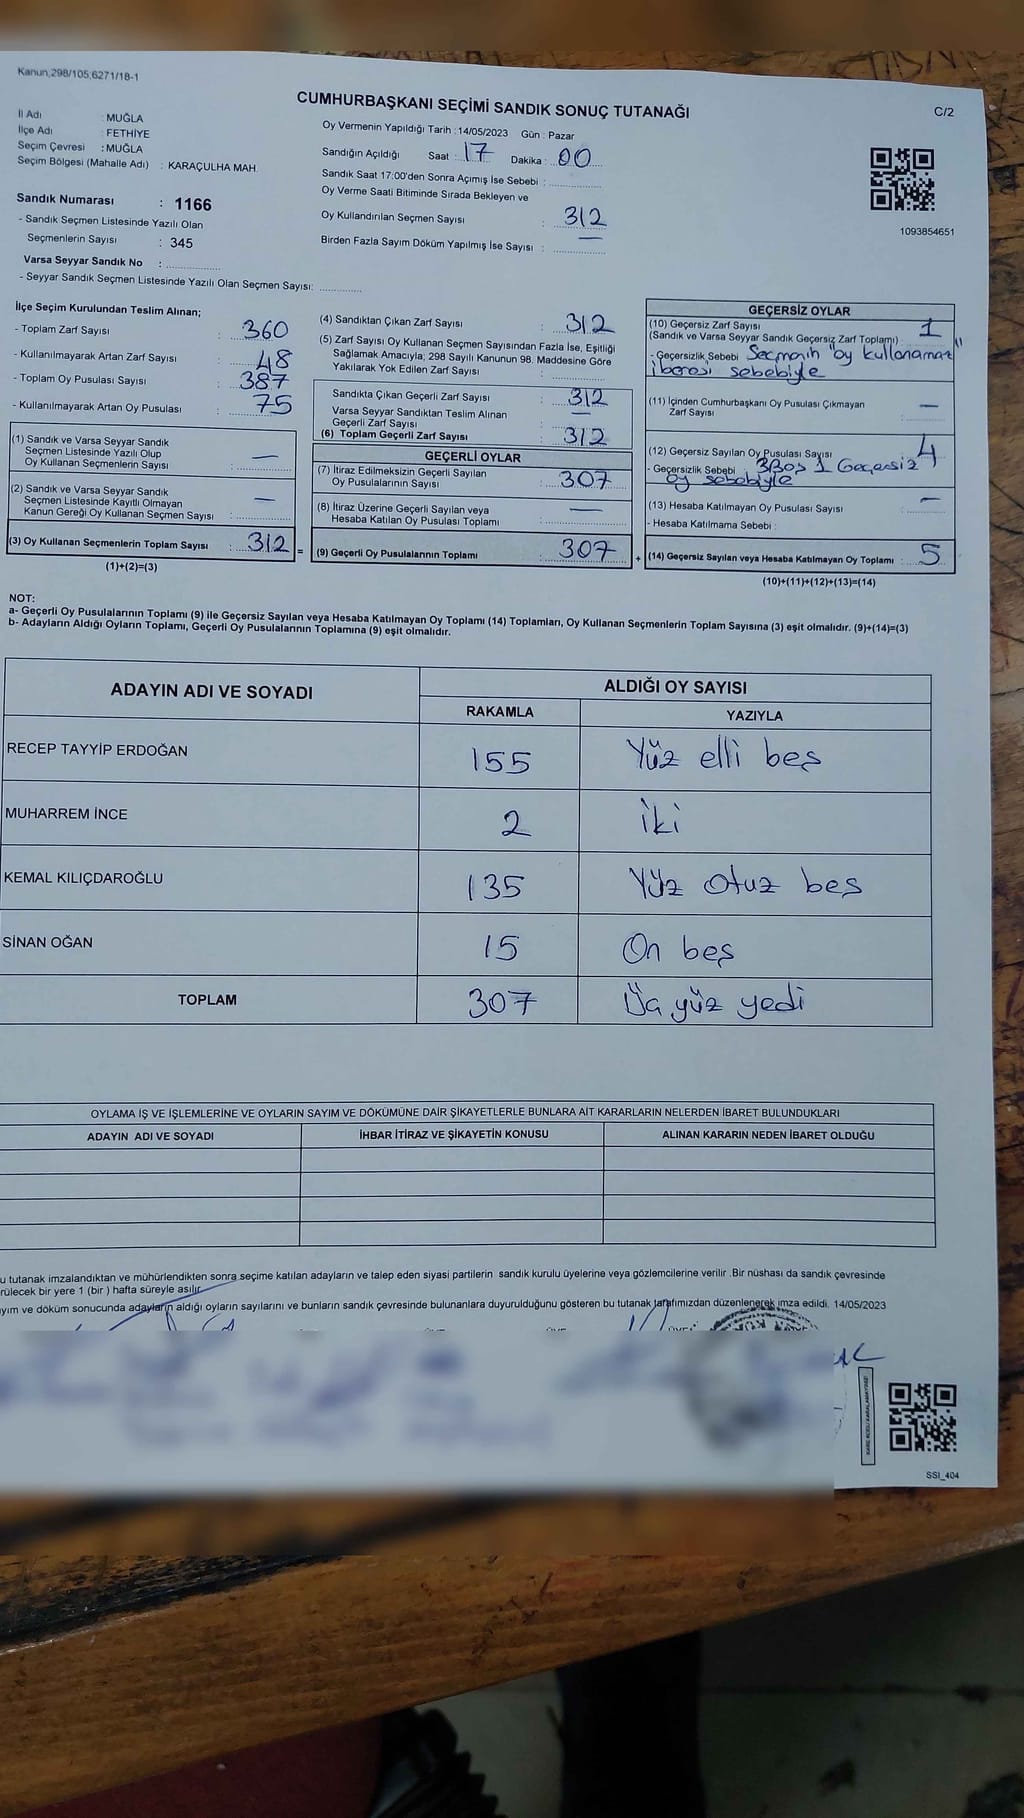 Kanun,298/105,6271/18-1
CUMHURBAŞKANI SEÇİMİ SANDIK SONUÇ TUTANAĞI
C/2
İl Adı : MUĞLA
İlçe Adı : FETHİYE
Seçim Çevresi : MUĞLA
Seçim Bölgesi (Mahalle Adı) : KARAÇULHA MAH.
Sandık Numarası : 1166
- Sandık Seçmen Listesinde Yazılı Olan
Seçmenlerin Sayısı : 345
Varsa Seyyar Sandık No :
- Seyyar Sandık Seçmen Listesinde Yazılı Olan Seçmen Sayısı:
Oy Vermenin Yapıldığı Tarih : 14/05/2023 Gün : Pazar
Sandığın Açıldığı Saat : 17 Dakika : 00
Sandık Saat 17:00'den Sonra Açımış İse Sebebi :
Oy Verme Saati Bitiminde Sırada Bekleyen ve
Oy Kullandırılan Seçmen Sayısı : 312
Birden Fazla Sayım Döküm Yapılmış İse Sayısı : —
1093854651
İlçe Seçim Kurulundan Teslim Alınan;
- Toplam Zarf Sayısı : 360
- Kullanılmayarak Artan Zarf Sayısı : 48
- Toplam Oy Pusulası Sayısı : 387
- Kullanılmayarak Artan Oy Pusulası : 75
(1) Sandık ve Varsa Seyyar Sandık
Seçmen Listesinde Yazılı Olup
Oy Kullanan Seçmenlerin Sayısı : —
(2) Sandık ve Varsa Seyyar Sandık
Seçmen Listesinde Kayıtlı Olmayan
Kanun Gereği Oy Kullanan Seçmen Sayısı : —
(3) Oy Kullanan Seçmenlerin Toplam Sayısı : 312 =
(1)+(2)=(3)
(4) Sandıktan Çıkan Zarf Sayısı : 312
(5) Zarf Sayısı Oy Kullanan Seçmen Sayısından Fazla İse, Eşitliği
Sağlamak Amacıyla; 298 Sayılı Kanunun 98. Maddesine Göre
Yakılarak Yok Edilen Zarf Sayısı :
Sandıkta Çıkan Geçerli Zarf Sayısı : 312
Varsa Seyyar Sandıktan Teslim Alınan
Geçerli Zarf Sayısı : —
(6) Toplam Geçerli Zarf Sayısı : 312
GEÇERLİ OYLAR
(7) İtiraz Edilmeksizin Geçerli Sayılan
Oy Pusulalarının Sayısı : 307
(8) İtiraz Üzerine Geçerli Sayılan veya
Hesaba Katılan Oy Pusulası Toplamı : —
(9) Geçerli Oy Pusulalarının Toplamı : 307 +
GEÇERSİZ OYLAR
(10) Geçersiz Zarf Sayısı : 1
(Sandık ve Varsa Seyyar Sandık Geçersiz Zarf Toplamı)
- Geçersizlik Sebebi Seçmenin "oy kullanamaz"
iberesi sebebiyle
(11) İçinden Cumhurbaşkanı Oy Pusulası Çıkmayan
Zarf Sayısı : —
(12) Geçersiz Sayılan Oy Pusulası Sayısı 4
- Geçersizlik Sebebi 3 Boş 1 Geçersiz
oy sebebiyle
(13) Hesaba Katılmayan Oy Pusulası Sayısı : —
- Hesaba Katılmama Sebebi :
(14) Geçersiz Sayılan veya Hesaba Katılmayan Oy Toplamı : 5
(10)+(11)+(12)+(13)=(14)
NOT:
a- Geçerli Oy Pusulalarının Toplamı (9) ile Geçersiz Sayılan veya Hesaba Katılmayan Oy Toplamı (14) Toplamları, Oy Kullanan Seçmenlerin Toplam Sayısına (3) eşit olmalıdır. (9)+(14)=(3)
b- Adayların Aldığı Oyların Toplamı, Geçerli Oy Pusulalarının Toplamına (9) eşit olmalıdır.
ADAYIN ADI VE SOYADI
ALDIĞI OY SAYISI
RAKAMLA
YAZIYLA
RECEP TAYYİP ERDOĞAN 155 Yüz elli beş
MUHARREM İNCE 2 iki
KEMAL KILIÇDAROĞLU 135 Yüz otuz beş
SİNAN OĞAN 15 On beş
TOPLAM 307 Üç yüz yedi
OYLAMA İŞ VE İŞLEMLERİNE VE OYLARIN SAYIM VE DÖKÜMÜNE DAİR ŞİKAYETLERLE BUNLARA AİT KARARLARIN NELERDEN İBARET BULUNDUKLARI
ADAYIN ADI VE SOYADI
İHBAR İTİRAZ VE ŞİKAYETİN KONUSU
ALINAN KARARIN NEDEN İBARET OLDUĞU
u tutanak imzalandıktan ve mühürlendikten sonra seçime katılan adayların ve talep eden siyasi partilerin sandık kurulu üyelerine veya gözlemcilerine verilir .Bir nüshası da sandık çevresinde
rülecek bir yere 1 (bir ) hafta süreyle asılır.
yım ve döküm sonucunda adayların aldığı oyların sayılarını ve bunların sandık çevresinde bulunanlara duyurulduğunu gösteren bu tutanak tarafımızdan düzenlenerek imza edildi. 14/05/2023
KARE KODU KARALAMAYINIZ!
SSI_404